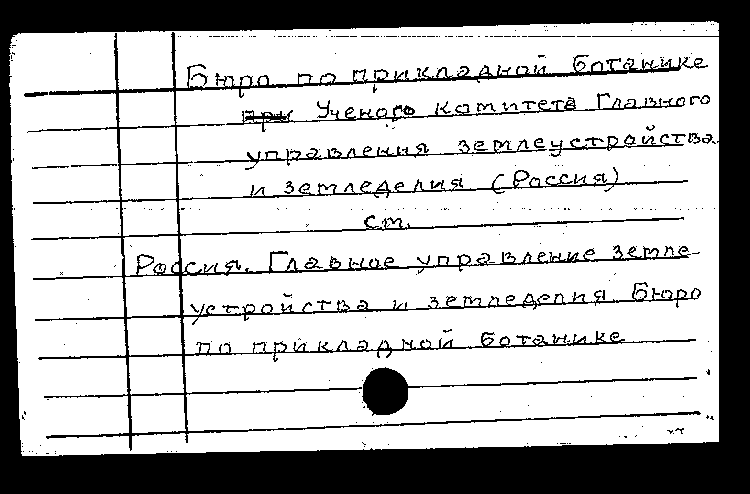 Бюро по прикладной ботанике
при Ученого комитета Главного
управления землеустройства
и земледелия (Россия)
см.
Россия. Главное управление земле-
устройства и земледелия Бюро
по прикладной ботанике